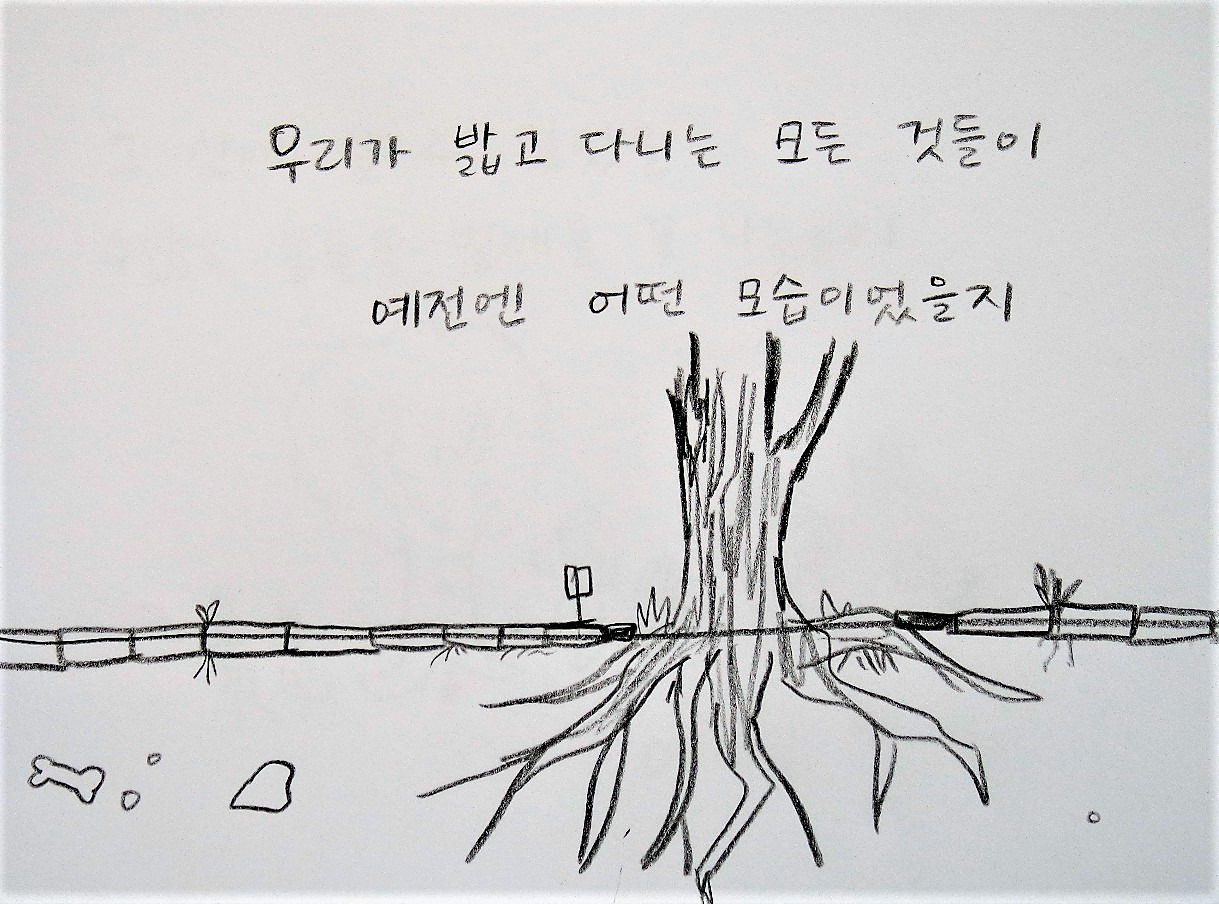 우리가 밟고 다니는 모든 것들이
예전엔 어떤 모습이었을지